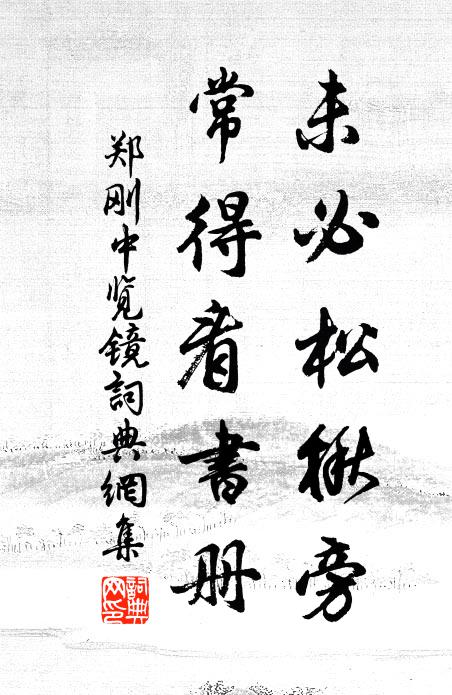 未必松楸旁
常得看書册
郑刚中览镜詞典網集
詞典网印